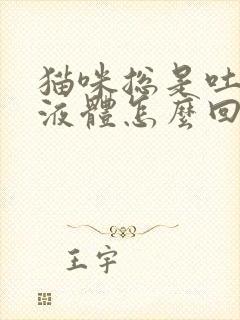 猫咪总是吐
液體怎麼回
王宇